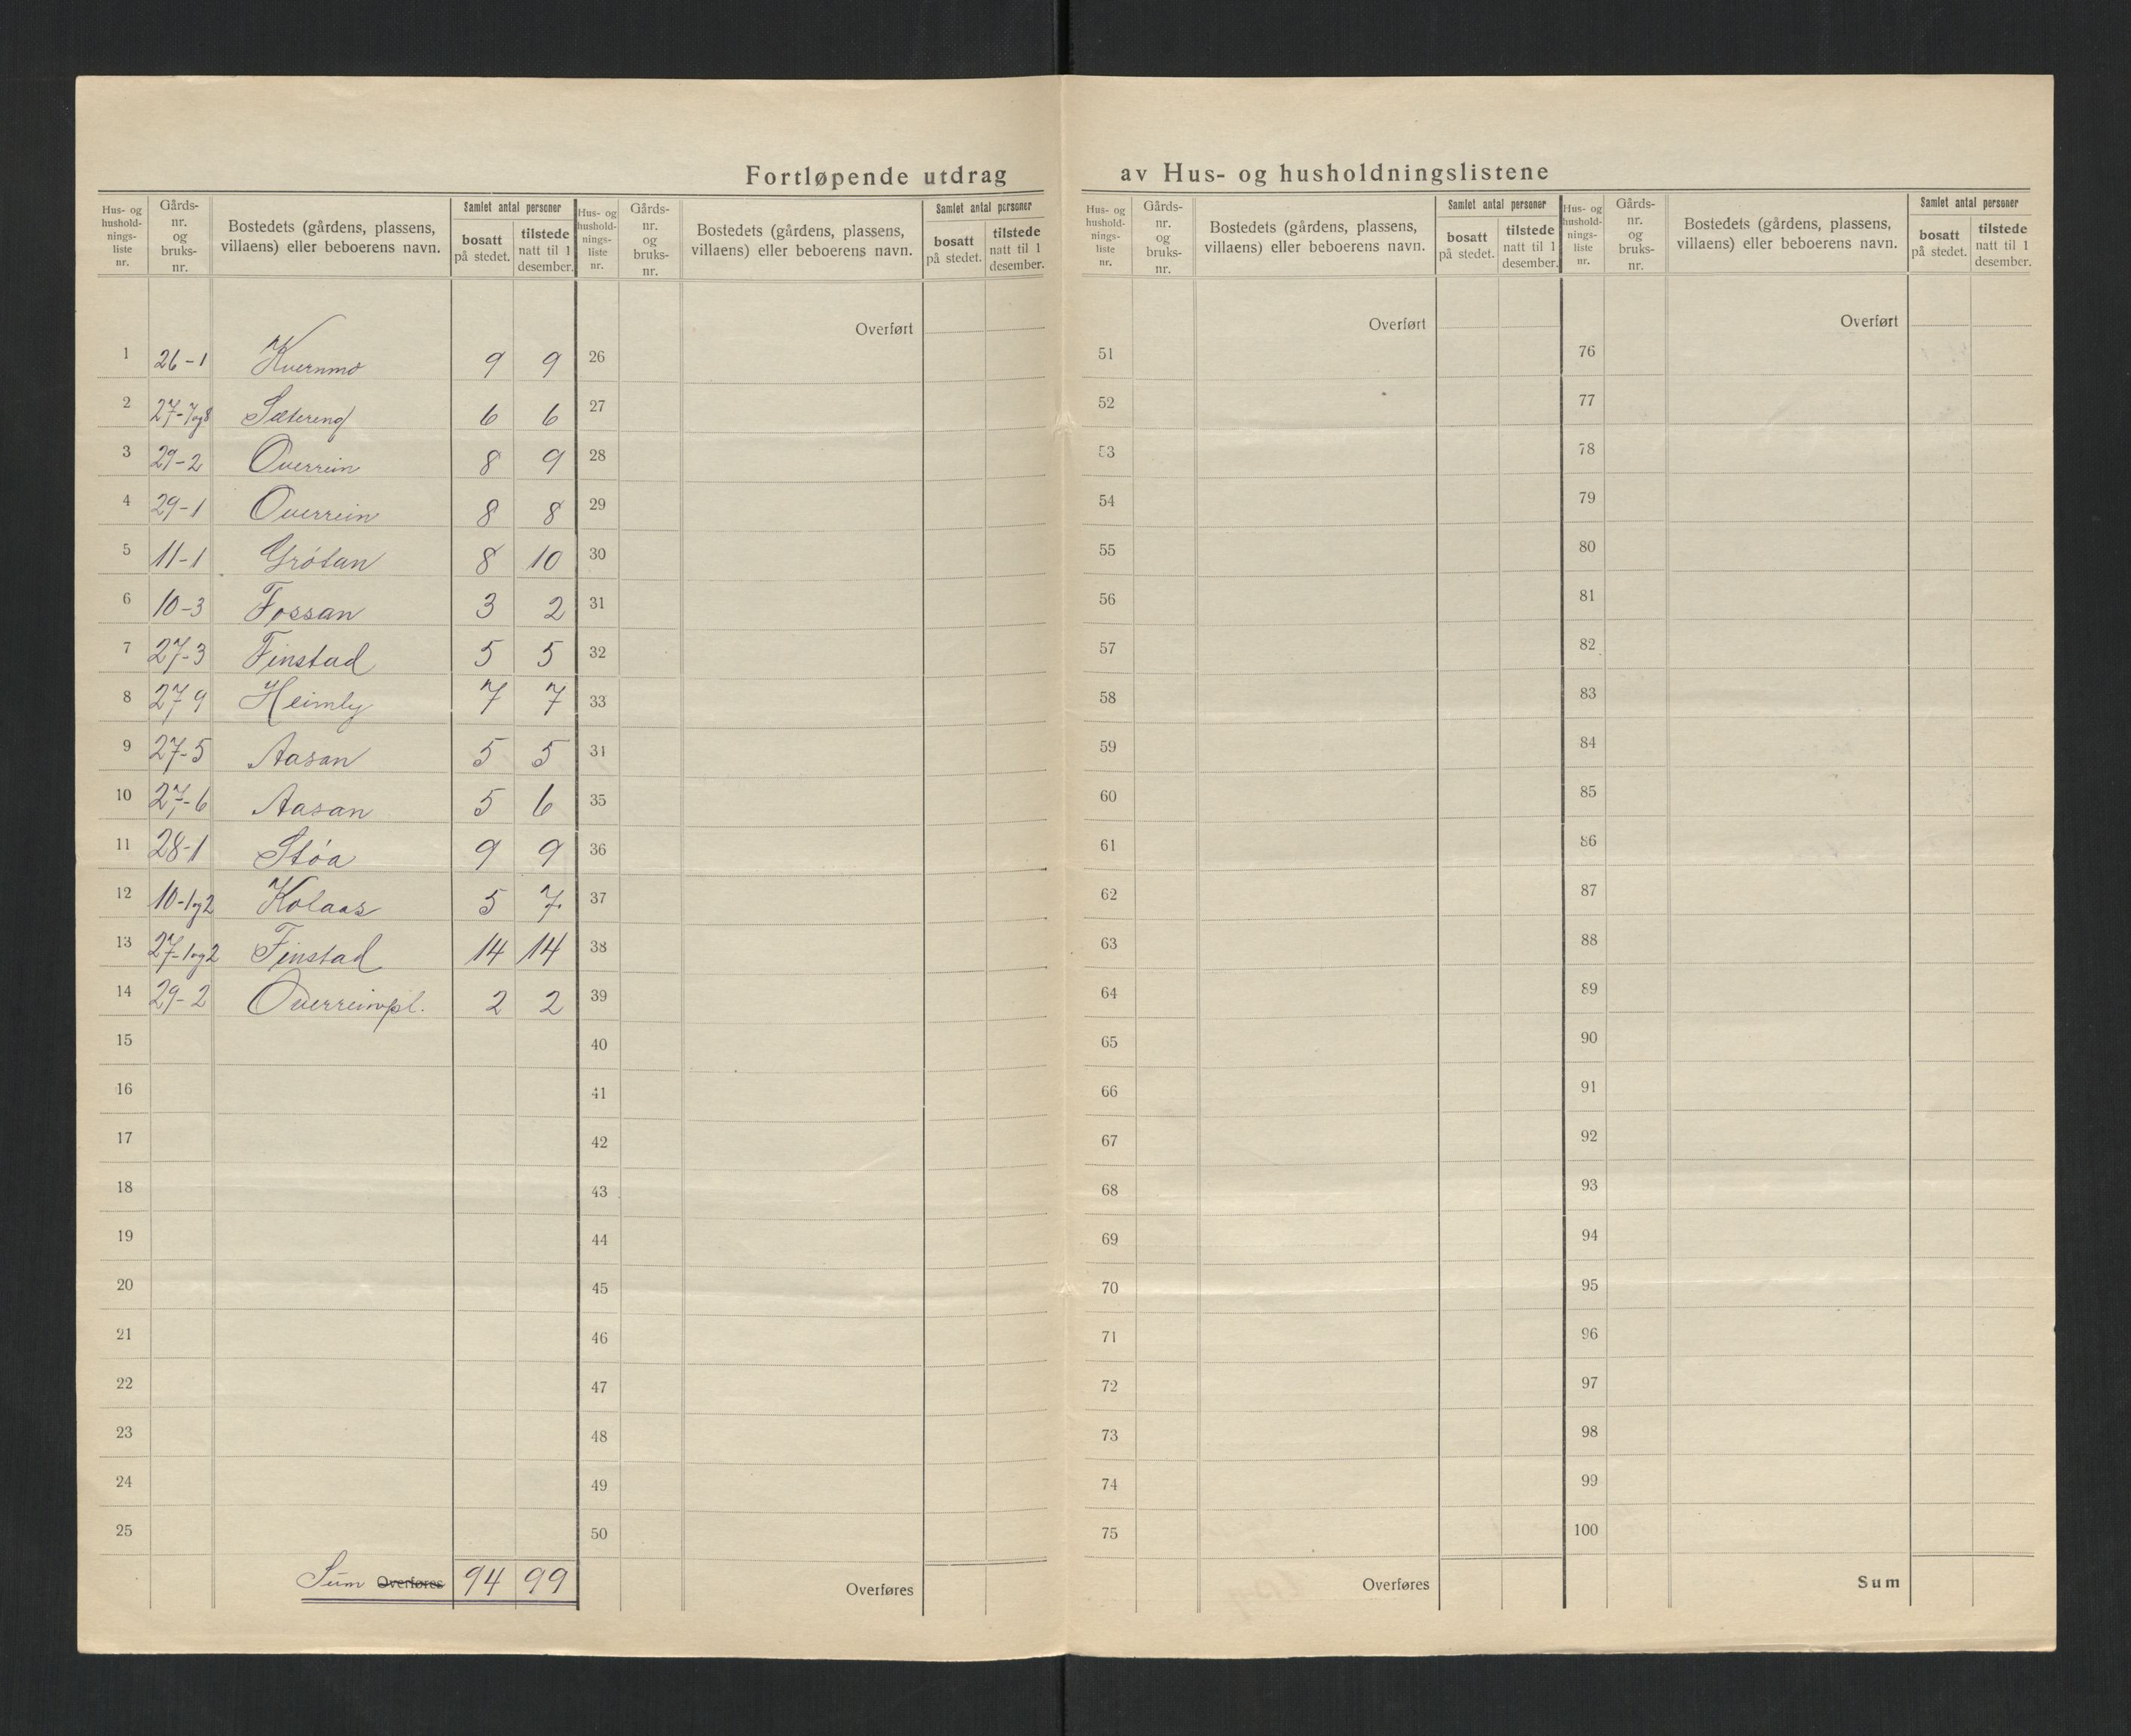 Fortløpende utdrag av Hus- og husholdningslistene
Hus- og hushold-nings-liste nr. Gårds-nr. og bruks-nr. Bostedets (gårdens, plassens, villaens) eller beboerens navn. Samlet antal personer bosatt på stedet. tilstede natt til 1 desember.
1 26-1 Kvernmo 9 9
2 27-7og8 Sætereng 6 6
3 29-2 Overrein 8 9
4 29-1 Overrein 8 8
5 11-1 Grótan 8 10
6 10-3 Fossan 3 2
7 27-3 Finstad 5 5
8 27 9 Heimly 7 7
9 27-5 Aasan 5 5
10 27-6 Aasan 5 6
11 28-1 Støa 9 9
12 10-1og2 Kolaas 5 7
13 27-1og2 Finstad 14 14
14 29-2 Overreinpl. 2 2
15
16
17
18
19
20
21
22
23
24
25
Sum Overføres 94 99
Hus- og hushold-nings-liste nr. Gårds-nr. og bruks-nr. Bostedets (gårdens, plassens, villaens) eller beboerens navn. Samlet antal personer bosatt på stedet. tilstede natt til 1 desember.
Overført
26
27
28
29
30
31
32
33
34
35
36
37
38
39
40
41
42
43
44
45
46
47
48
49
50
Overføres
Hus- og hushold-nings-liste nr. Gårds-nr. og bruks-nr. Bostedets (gårdens, plassens, villaens) eller beboerens navn. Samlet antal personer bosatt på stedet. tilstede natt til 1 desember.
Overført
51
52
53
54
55
56
57
58
59
60
61
62
63
64
65
66
67
68
69
70
71
72
73
74
75
Overføres
Hus- og hushold-nings-liste nr. Gårds-nr. og bruks-nr. Bostedets (gårdens, plassens, villaens) eller beboerens navn. Samlet antal personer bosatt på stedet. tilstede natt til 1 desember.
Overført
76
77
78
79
80
81
82
83
84
85
86
87
88
89
90
91
92
93
94
95
96
97
98
99
100
Sum